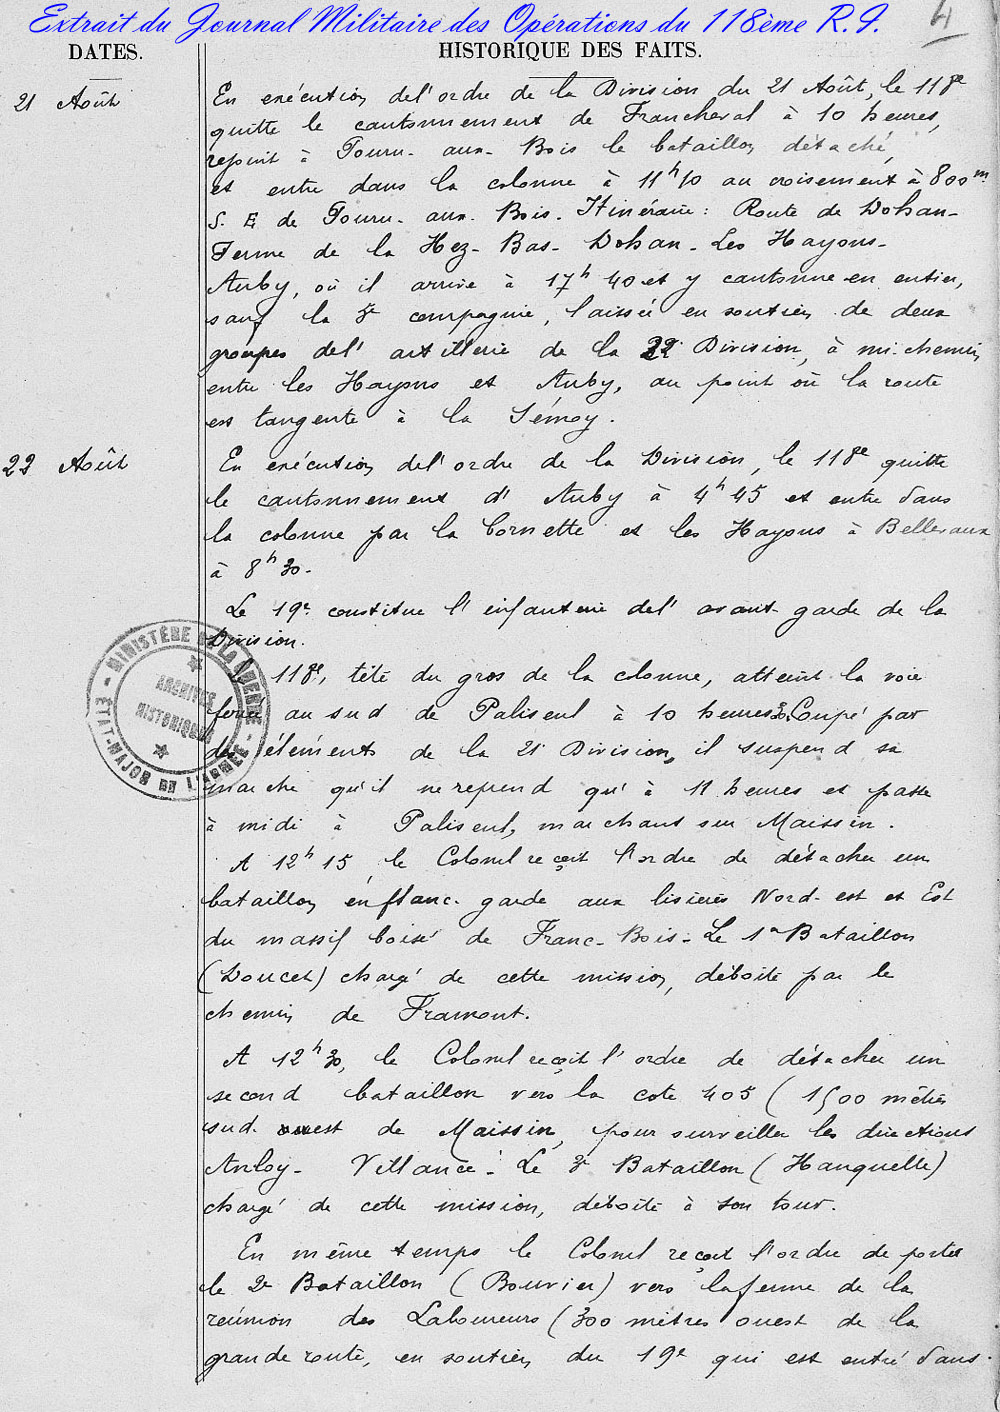 Extrait du Journal Militaire des Opérations du 118ème R.I.
4
DATES.
HISTORIQUE DES FAITS.
21 Août
En exécution de l'ordre de la Division du 21 Août, le 118e
quitte le cantonnement de Francheval à 10 heures,
rejoint à Pouru-aux-Bois le bataillon détaché,
et entre dans la colonne à 11h10 au croisement à 800m
S.E de Pouru-aux-Bois. Itinéraire: Route de Dohan-
Ferme de la Hez-Bas-Dohan-Les Hayons-
Auby, où il arrive à 17h40 et y cantonne en entier,
sauf la 3e compagnie, laissée en soutien de deux
groupes de l'artillerie de la 22e Division, à mi-chemin
entre les Hayons et Auby, au point où la route
est tangente à la Sémoy.
22 Août
En exécution de l'ordre de la Division, le 118e quitte
le cantonnement d'Auby à 4h45 et entre dans
la colonne par la Cornette et les Hayons à Bellevaux
à 8h30.
Le 19e constitue l'infanterie de l'avant-garde de la
Division.
Le 118e, tête du gros de la colonne, atteint la voie
ferrée au sud de Paliseul à 10 heures 30. Coupé par
des éléments de la 21e Division, il suspend sa
marche qu'il ne reprend qu'à 11 heures et passe
à midi à Paliseul, marchant sur Maissin.
A 12h15, le Colonel reçoit l'ordre de détacher un
bataillon en flanc-garde aux lisières Nord-est et Est
du massif boisé de Franc-Bois-Le 1er Bataillon
(Doucet) chargé de cette mission, déboîte par le
chemin de Framont.
A 12h30, le Colonel reçoit l'ordre de détacher un
second bataillon vers la cote 405 (1500 mètres
sud-ouest de Maissin, pour surveiller les directions
Anloy-Villance-Le 3e Bataillon (Hanquelle)
chargé de cette mission, déboîte à son tour.
En même temps le Colonel reçoit l'ordre de porter
le 2e Bataillon (Bouvier) vers la ferme de la
réunion des Laboureurs (300 mètres ouest de la
grande route, en soutien du 19e qui est entré dans
MINISTÈRE DE LA GUERRE
ÉTAT-MAJOR DE L'ARMÉE
ARCHIVES
HISTORIQUES